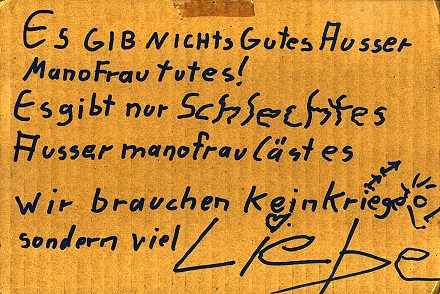 Es GIB NICHts Gutes Ausser
Manofrau tutes!
Es gibt nur Schlechtes
Ausser manofrau Lästes
wir brauchen keinkrieged
sondern viel Liebe